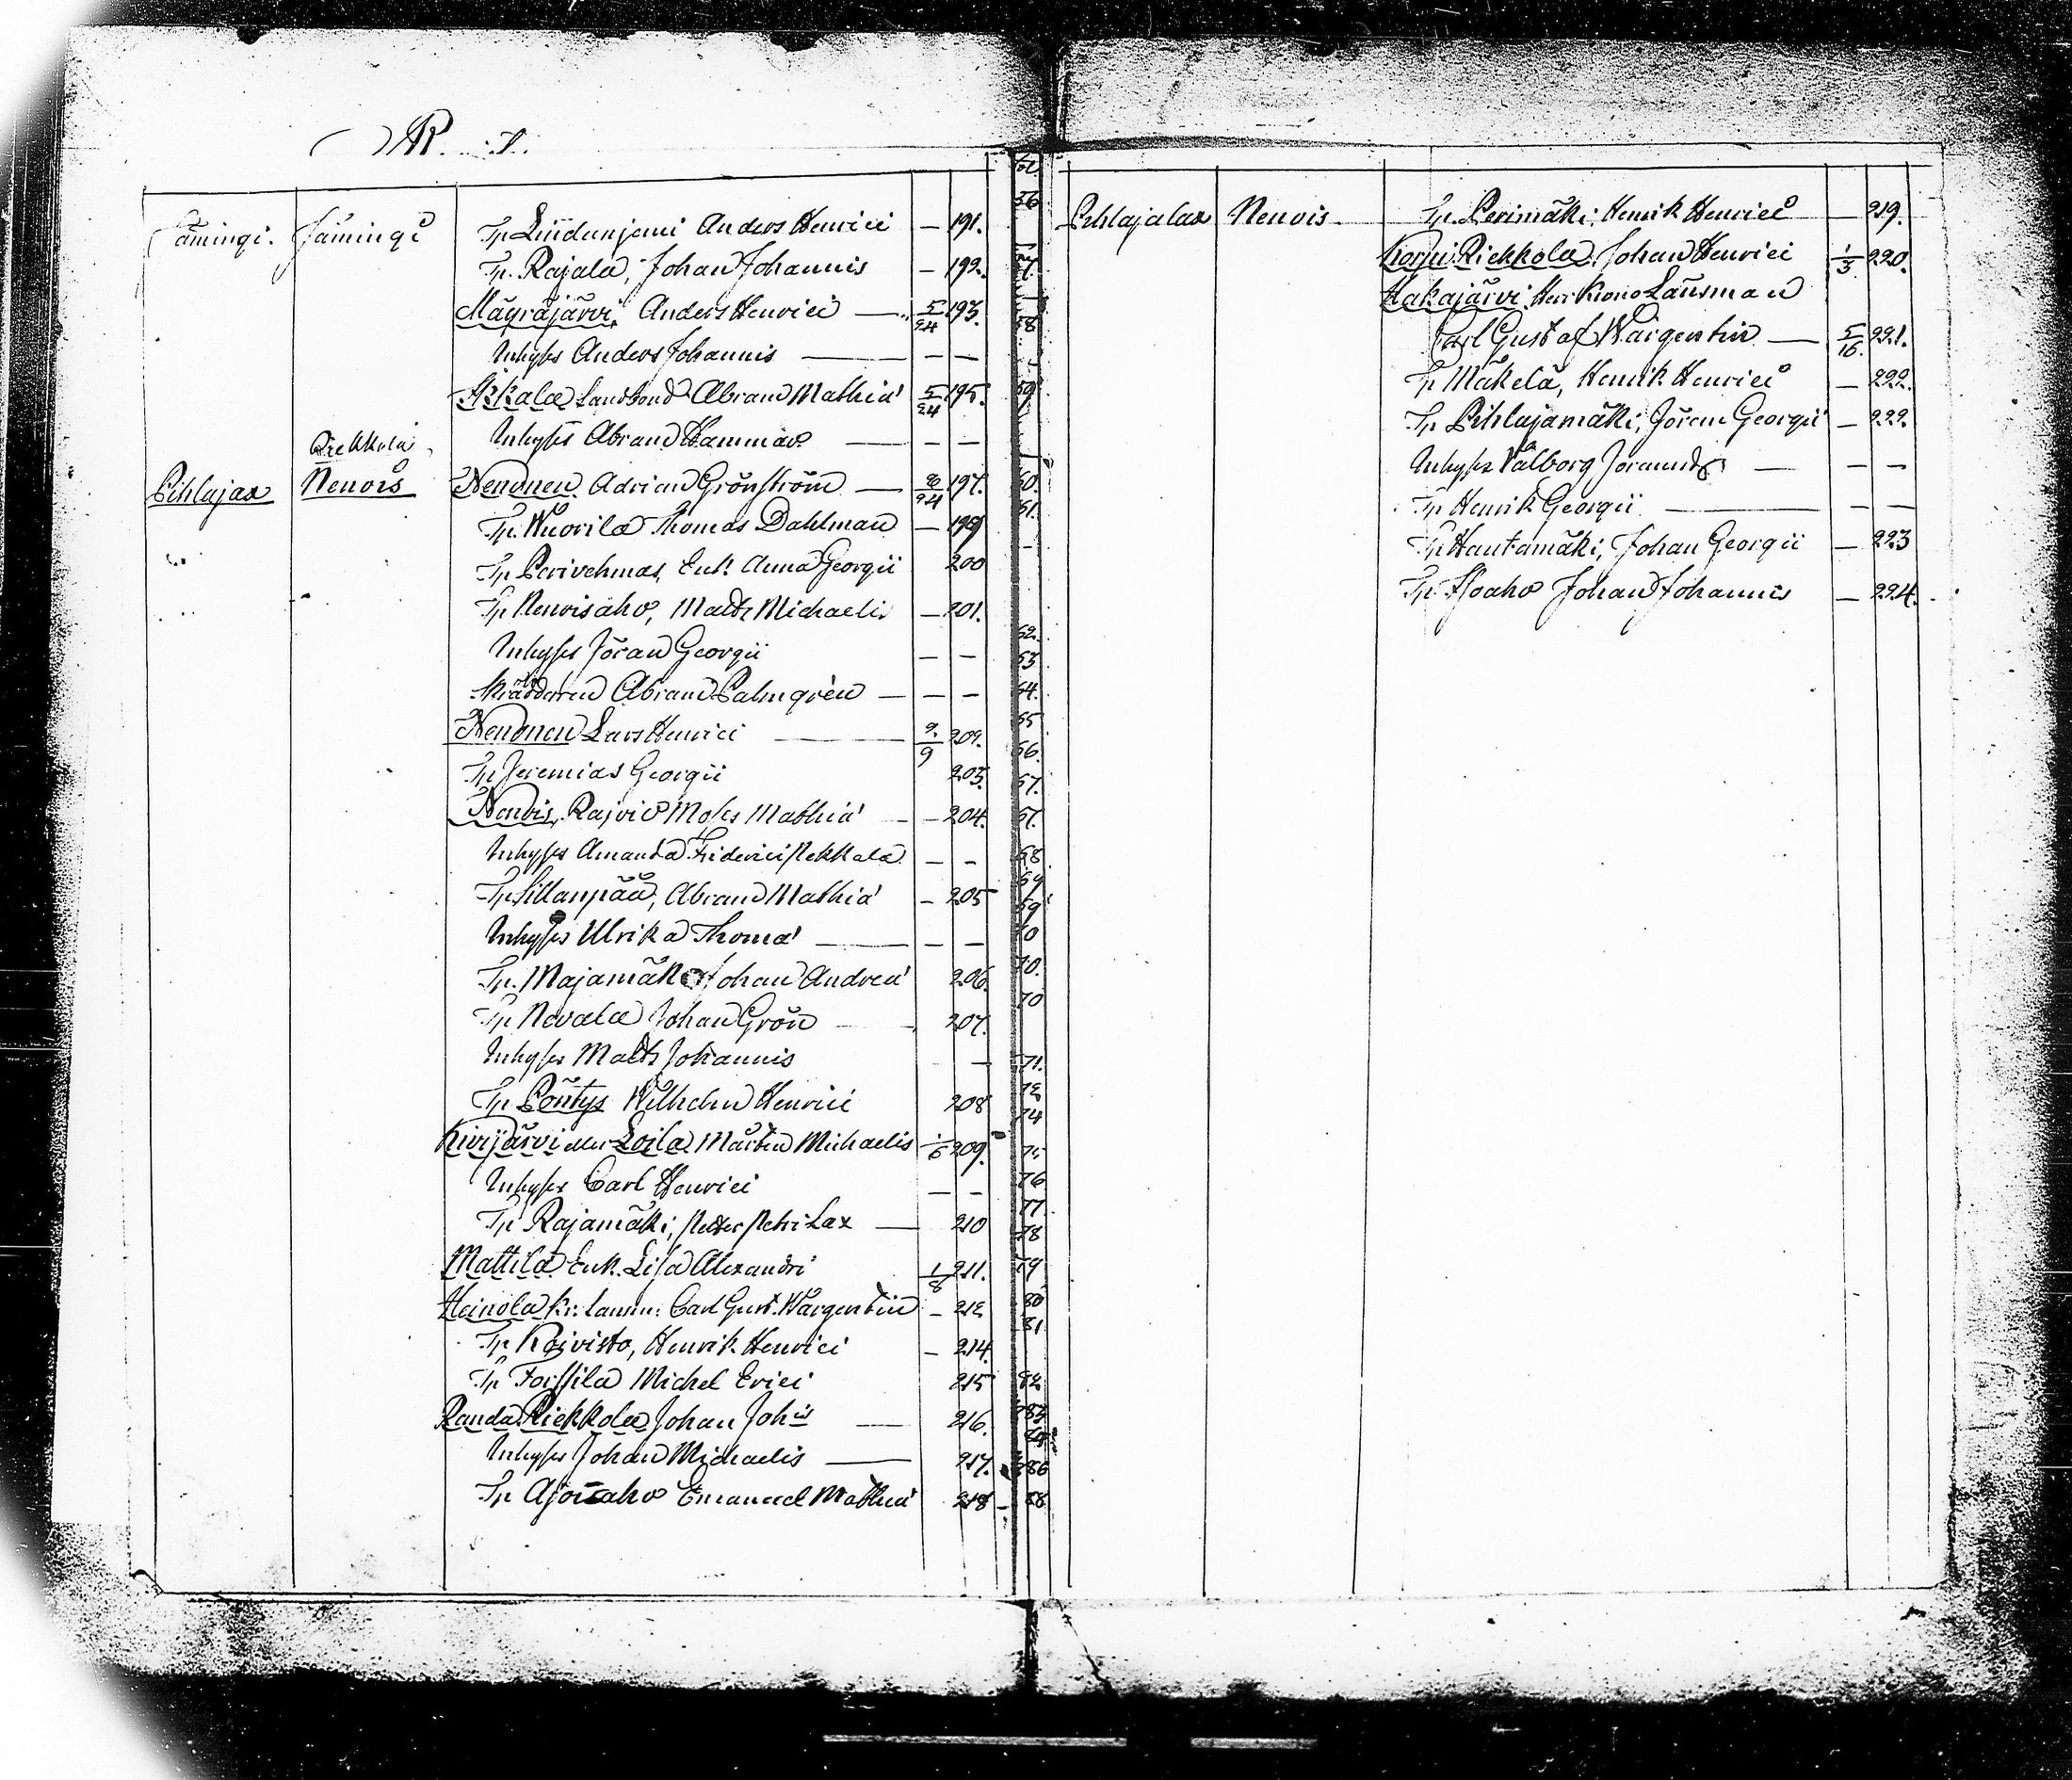 R
Jämingi Tp Liidunjani Anders Henrici — 191.
Tp. Rajala, Johan Johannis — 192.
Mäyräjärvi, Anders Henrici — 5/24 193.
Inhyses Anders Johannis — — —
Landbond Abram Mathiæ 5/24 195.
Inhyses Abram Hammar — — —
Riekkola
Pihlajax Neuvois Nenonen Adrian Grönström — 197.
Tp. Wuorila Thomas Dahlman — 199
Tp Perivehmas, Enk. Anna Georgii 200
Tp Neuvisaho, Matts Michaelis — 201.
Inhyses Jöran Georgii — —
Skräddaren Abram Palmgrén — — —
Nenonen Lars Henrici — 202.
Tp Jeremias Georgii 203.
Neuvis, Rajvio Moses Mathiæ — 204.
Inhyses Amanda Friderici Pekkala — —
Tp Sillanpää, Abram Mathiæ — 205
Inhyses Ulrika Thomæ — — —
Tp. Majamäki Johan Andreæ 206.
Tp Nevala Johan Grön — 207.
Inhyses Matts Johannis — —
Tp Pöntys Wilhelm Henrici 208
Kivijärvi eller Loila Mårten Michaelis 1/6 209.
Inhyses Carl Henrici — —
Tp Rajamäki, Petter Petri Lax — 210
Mattila Enk. Lisa Alexandri 1/8 211.
Heinola Kr: Länsm: Carl Gust. Wargentin — 212
Tp Koivisto, Henrik Henrici — 214.
Tp Forssila Michel Erici 215
Randa Riekkola Johan Joh:is — 216.
Inhyses Johan Michaelis — 217.
Tp Ajosaho Emanuel Mathiæ 218
Pihlajalax Neuvois Tp. Perimäki, Henrik Henrici — 219.
Korpi Riekkola, Johan Henrici 1/3 220.
Hakajärvi, Herr Krono Länsman
Carl Gustaf Wargentin — 5/16. 221.
Tp Mäkelä, Henrik Henrici — 222.
Tp Pihlajamäki, Jöran Georgii — 222.
Inhyses Valborg — — —
Tp Henrik Georgii — — —
Tp Hautamäki, Johan Georgii — 223
Tp Isoaho Johan Johannis — 224.